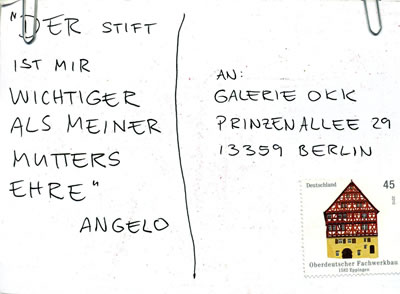 "DER STIFT
IST MIR
WICHTIGER
ALS MEINER
MUTTERS
EHRE"
ANGELO
AN:
GALERIE OKK
PRINZENALLEE 29
13359 BERLIN
Deutschland 45
Oberdeutscher Fachwerkbau
1582 Eppingen